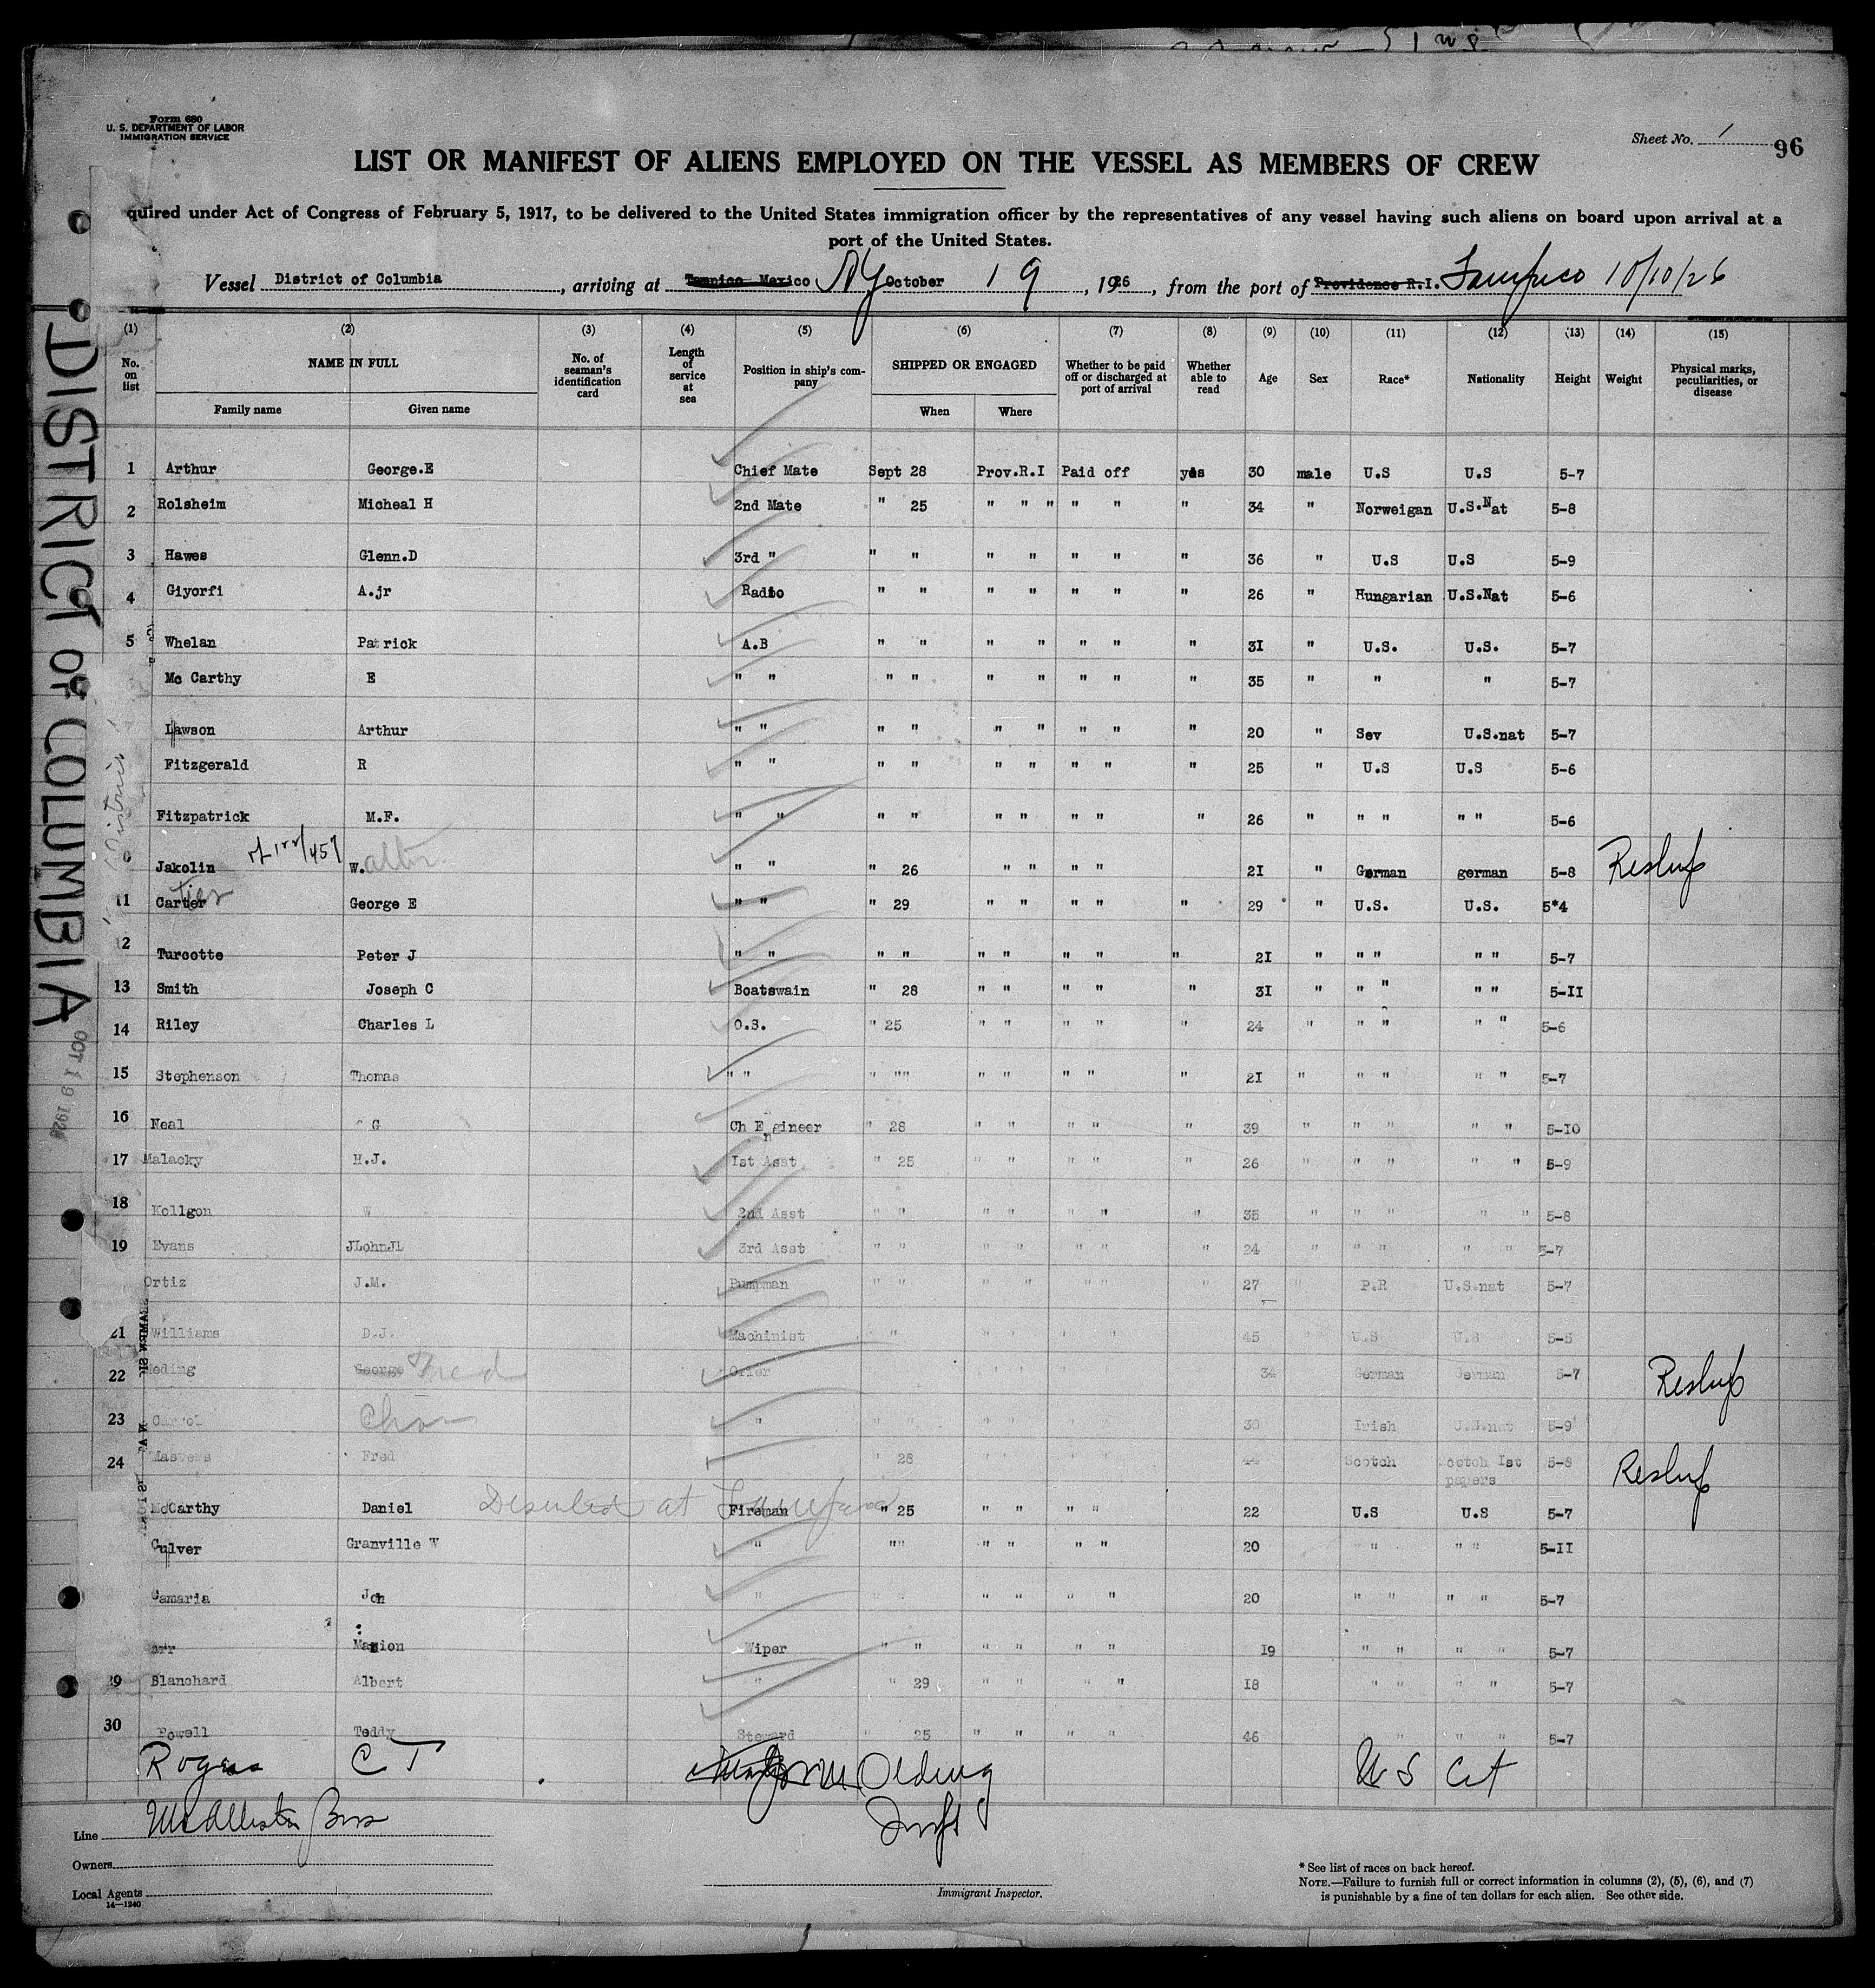 Form 680
U. S. DEPARTMENT OF LABOR
IMMIGRATION SERVICE
Sheet No. 1 96
LIST OR MANIFEST OF ALIENS EMPLOYED ON THE VESSEL AS MEMBERS OF CREW
quired under Act of Congress of February 5, 1917, to be delivered to the United States immigration officer by the representatives of any vessel having such aliens on board upon arrival at a
port of the United States.
Vessel District of Columbia, arriving at Tampico Mexico NY October 19, 1926, from the port of Providence R.I. Tampico 10/10/26
DISTRICT OF COLUMBIA
OCT 19 1926
(1) (2) (3) (4) (5) (6) (7) (8) (9) (10) (11) (12) (13) (14) (15)
No. on list NAME IN FULL No. of seaman's identification card Length of service at sea Position in ship's company SHIPPED OR ENGAGED Whether to be paid off or discharged at port of arrival Whether able to read Age Sex Race* Nationality Height Weight Physical marks, peculiarities, or disease
Family name Given name When Where
1 Arthur George.E Chief Mate Sept 28 Prov.R.I Paid off yes 30 male U.S U.S 5-7
2 Rolsheim Micheal H 2nd Mate " 25 " " " " " " 34 " Norweigan U.S.Nat 5-8
3 Hawes Glenn.D 3rd " " " " " " " " 36 " U.S U.S 5-9
4 Giyorfi A.jr Radio " " " " " " " 26 " Hungarian U.S.Nat 5-6
5 Whelan Patrick A.B " " " " " " " 31 " U.S. U.S. 5-7
Mc Carthy E " " " " " " " " " 35 " " " 5-7
Lawson Arthur " " " " " " " " " 20 " Sev U.S.nat 5-7
Fitzgerald R " " " " " " " " " 25 " U.S U.S 5-6
Fitzpatrick M.F. " " " " " " " " " 26 " " " " " 5-6
Jakolin W.alter " " " 26 " " " " 21 " German german 5-8 Reship
11 Carter George E " " " 29 " " " " " 29 " U.S. U.S. 5*4
12 Turcotte Peter J " " " " " " " " " 21 " " " " " 5-7
13 Smith Joseph C Boatswain " 28 " " " " " 31 " " " " " 5-11
14 Riley Charles L O.S. " 25 " " " " " 24 " " " " " 5-6
15 Stephenson Thomas " " " "" " " " " " 21 " " " " " 5-7
16 Neal G Ch Engineer " 28 " " " " " 39 " " " " " 5-10
17 Malacky H.J. 1st Asst. " 25 " " " " " 26 " " " " " 5-9
18 Kollgon W 2nd Asst " " " " " " " 35 " " " " " 5-8
19 Evans JLohnJL 3rd Asst " " " " " " " 24 " " " " " 5-7
Ortiz J.M. Pumpman " " " " " " " 27 " P.R U.S.nat 5-7
21 Williams D.J. Machinist " " " " " 45 " U.S U.S 5-5
22 eding George Fred Oiler 34 German German 5-7 Reship
23 " " " " " 30 Irish U.S.nat 5-9
24 Masters Fred " 28 " " " 44 Scotch Scotch 1st papers 5-8 Reship
McCarthy Daniel Fireman " 25 " " " " 22 U.S U.S 5-7
Culver Granville W " "" " " " " 20 " " " " 5-11
Camaria " " " " " 20 " " " " 5-7
Marion Wiper " " " " " " 19 " " " " 5-7
29 Blanchard Albert " " 29 " " " " 18 " " " " 5-7
30 Powell Teddy Steward " 25 " " " " 46 " " " " 5-7
Rogers C T US Cit
Olding
Insp
Line McAllister Bros
Owners
Local Agents
14—1240
Immigrant Inspector.
* See list of races on back hereof.
NOTE.—Failure to furnish full or correct information in columns (2), (5), (6), and (7)
is punishable by a fine of ten dollars for each alien. See other side.